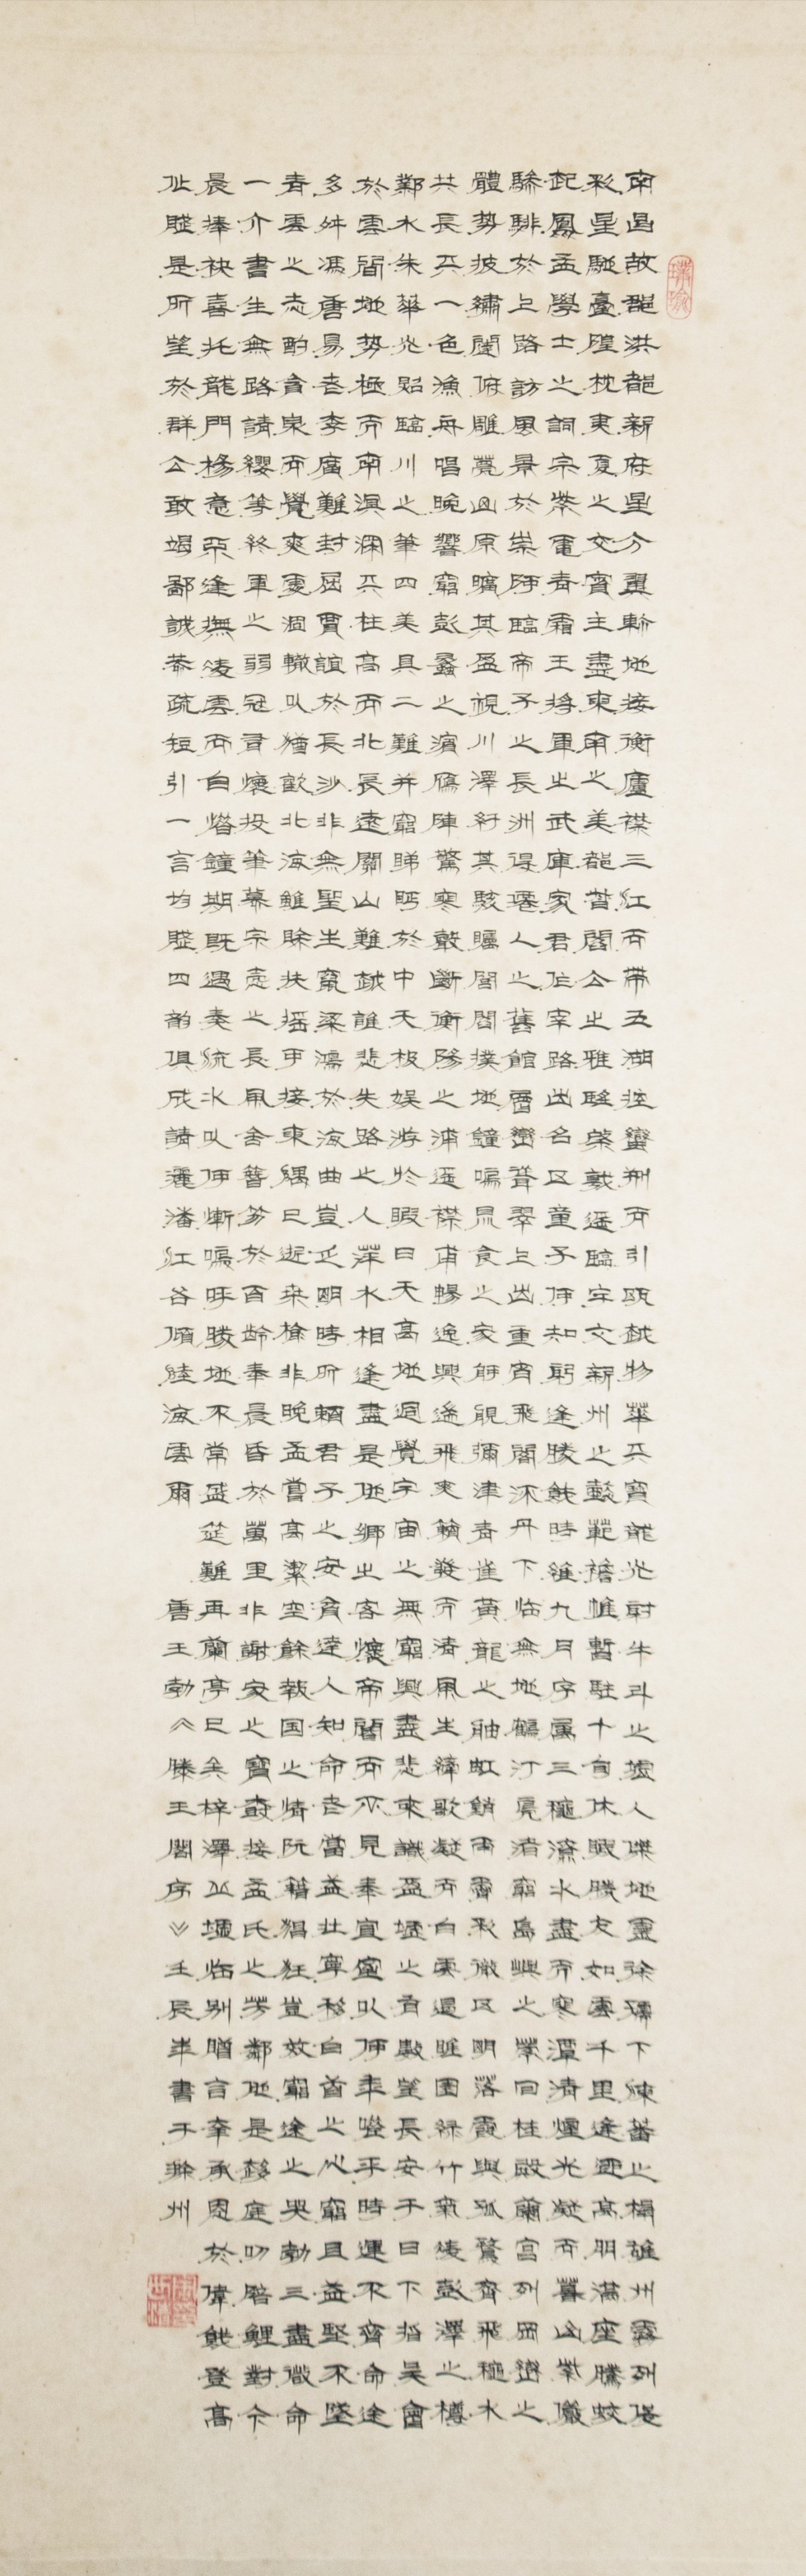 南昌故郡洪都新府星分翼軫地接衡廬襟三江而帶五湖控蠻荊而引甌越物華天寶龍光射牛斗之墟人傑地靈徐孺下陳蕃之榻雄州霧列俊
彩星馳臺隍枕夷夏之交賓主盡東南之美都督閻公之雅望棨戟遙臨宇文新州之懿範襜帷暫駐十旬休暇勝友如雲千里逢迎高朋滿座騰蛟
起鳳孟學士之詞宗紫電青霜王將軍之武庫家君作宰路出名區童子何知躬逢勝餞時維九月序屬三秋潦水盡而寒潭清煙光凝而暮山紫儼
驂騑於上路訪風景於崇阿臨帝子之長洲得僊人之舊館層巒聳翠上出重霄飛閣流丹下臨無地鶴汀鳧渚窮島嶼之縈回桂殿蘭宮列岡巒之
體勢披繡闥俯雕甍山原曠其盈視川澤紆其駭矚閭閻撲地鐘鳴鼎食之家舸艦彌津青雀黃龍之舳虹銷雨霽彩徹區明落霞與孤鶩齊飛秋水
共長天一色漁舟唱晚響窮彭蠡之濱雁陣驚寒聲斷衡陽之浦遙襟甫暢逸興遄飛爽籟發而清風生纖歌凝而白雲遏睢園綠竹氣凌彭澤之樽
鄴水朱華光照臨川之筆四美具二難并窮睇眄於中天極娛游於暇日天高地迥覺宇宙之無窮興盡悲來識盈虛之有數望長安于日下指吳會
於雲間地勢極而南溟深天柱高而北辰遠關山難越誰悲失路之人萍水相逢盡是他鄉之客懷帝閽而不見奉宣室以何年嗟乎時運不齊命途
多舛馮唐易老李廣難封屈賈誼於長沙非無聖主竄梁鴻於海曲豈乏明時所賴君子之安貧達人知命老當益壯寧移白首之心窮且益堅不墜
青雲之志酌貪泉而覺爽處涸轍以猶歡北海雖賒扶搖可接東隅已逝桑榆非晚孟嘗高潔空餘報国之情阮籍猖狂豈效窮途之哭勃三盡微命
一介書生無路請纓等終軍之弱冠有懷投筆慕宗愨之長風舍簪笏於百齡奉晨昏於萬里非謝家之寶樹接孟氏之芳鄰他是趨庭叨陪鯉對今
晨捧袂喜托龍門楊意不逢撫凌雲而自惜鐘期既遇奏流水以何慚嗚呼勝地不常盛筵難再蘭亭已矣梓澤丘墟臨別贈言幸承恩於偉餞登高
作賦是所望於群公敢竭鄙誠恭疏短引一言均賦四韵俱成請灑潘江各傾陸海雲爾 唐王勃《滕王閣序》壬辰年書于滁州